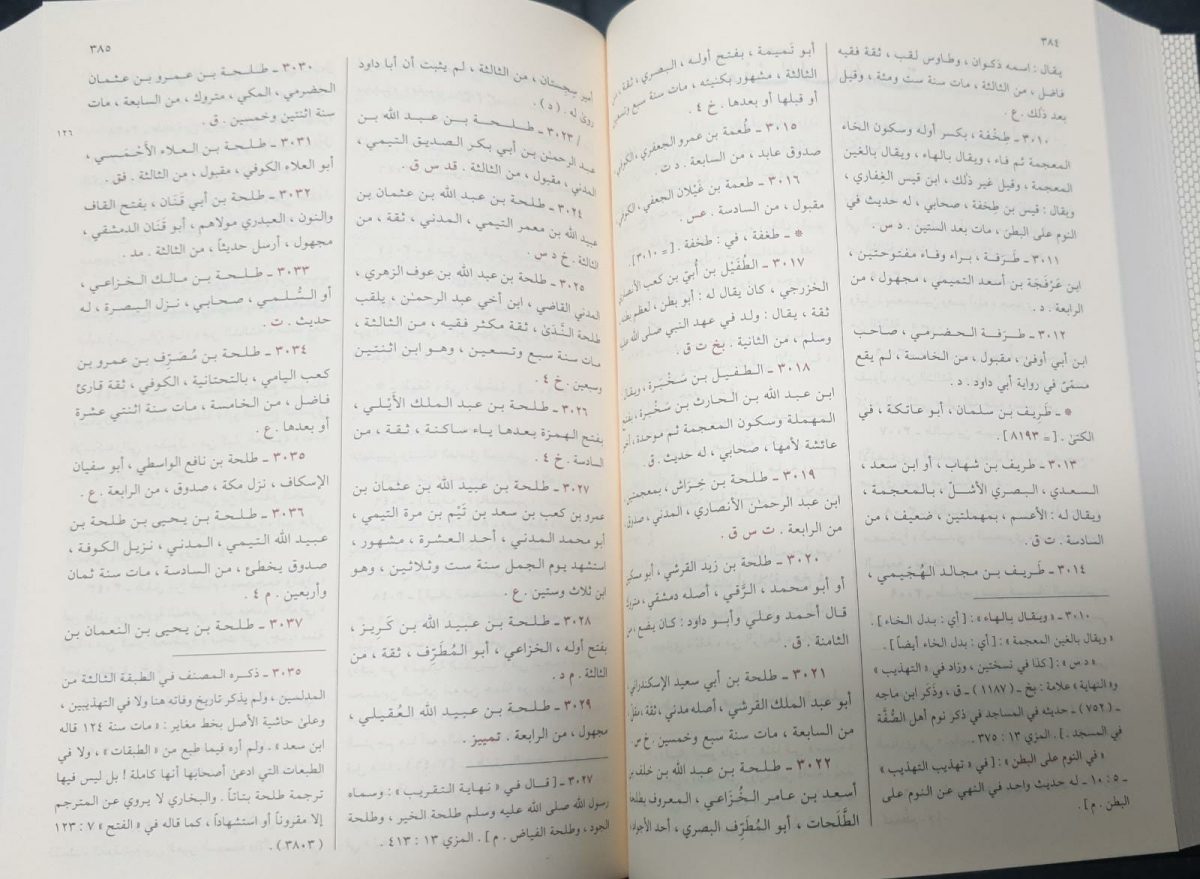 ٣٨٤
يقال : اسمه ذكوان ، وطاوس لقب ، ثقة فقيه
فاضل ، من الثالثة ، مات سنة ست ومئة ، وقيل
بعد ذلك . ع .
٣٠١٠ ـ طِخْفة ، بكسر أوله وسكون الخاء
المعجمة ثم فاء ، ويقال بالهاء ، ويقال بالغين
المعجمة ، وقيل غير ذلك ، ابن قيس الغِفاري ،
ويقال : قيس بن طخفة ، صحابي ، له حديث في
النوم على البطن ، مات بعد الستين . د س .
٣٠١١ ـ طَرَفة ، براء وفاء مفتوحتين ،
ابن عَرْفَجة بن أسعد التميمي ، مجهول ، من
الرابعة . د .
٣٠١٢ ـ طرفة الحضرمي ، صاحب
ابن أبي أوفى ، مقبول ، من الخامسة ، لم يقع
مسمًى في رواية أبي داود . د .
* ـ طَرِيف بن سلمان ، أبو عاتكة ، في
الكنى . [= ٨١٩٣] .
٣٠١٣ ـ طريف بن شهاب ، أو ابن سعد ،
السعدي ، البصري الأشلّ ، بالمعجمة ،
ويقال له : الأعسم ، بمهملتين ، ضعيف ، من
السادسة . ت ق .
٣٠١٤ ـ طَريف بن مجالد الهُجَيمي ،
٣٠١٠ ـ « ويقال بالهاء » : [أي : بدل الخاء] .
« ويقال بالغين المعجمة » : [أي : بدل الخاء أيضاً] .
« د س » : [كذا في نسختين ، وزاد في « التهذيب »
و« النهاية » علامة : بخ ـ (١١٨٧) ـ ق ، وذَكَر ابن ماجه
ـ (٧٥٢) ـ حديثه في المساجد في ذكر نوم أهل الصُّفَّة
في المسجد . ] . المزي ١٣ : ٣٧٥ .
« في النوم على البطن » : [في « تهذيب التهذيب »
ـ ٥ : ١٠ ـ له حديث واحد في النهي عن النوم على
البطن . م] .
أبو تَميمة ، بفتح أوله ، البصري ، ثقة ، من
الثالثة ، مشهور بكنيته ، مات سنة سبع وتسعين
أو قبلها أو بعدها . خ ٤ .
٣٠١٥ ـ طُعمة بن عمرو الجعفري ، الكوفي ،
صدوق عابد ، من السابعة . د ت .
٣٠١٦ ـ طعمة بن غَيْلان الجعفي ، الكوفي
مقبول ، من السادسة . عس .
* ـ طغفة ، في : طخفة . [= ٣٠١٠] .
٣٠١٧ ـ الطُّفَيْل بن أُبيّ بن كعب الأنصاري
الخزرجي ، كان يقال له : أبو بطن ، لعظم بطنه
ثقة ، يقال : ولد في عهد النبي صلى الله عليه
وسلم ، من الثانية . بخ ت ق .
٣٠١٨ ـ الطفيل بن سَخْبَرة ، ويقال
ابن عبد الله بن الحارث بن سَخْبرة ، بفتح
المهملة وسكون المعجمة ثم موحدة ، أخو
عائشة لأمها ، صحابي ، له حديث . ق .
٣٠١٩ ـ طلحة بن خِرَاش ، بمعجمتين
ابن عبد الرحمن الأنصاري ، المدني ، صدوق
من الرابعة . ت س ق .
٣٠٢٠ ـ طلحة بن زيد القرشي ، أبو مسكين
أو أبو محمد ، الرَّقي ، أصله دمشقي ، متروك
قال أحمد وعلي وأبو داود : كان يضع ، من
الثامنة . ق .
٣٠٢١ ـ طلحة بن أبي سعيد الإسكندراني
أبو عبد الملك القرشي ، أصله مدني ، ثقة
من السابعة ، مات سنة سبع وخمسين . خ س .
٣٠٢٢ ـ طلحة بن عبد الله بن خلف بن
أسعد بن عامر الخُزَاعي ، المعروف بطلحة
الطَّلَحات ، أبو المُطَرِّف البصري ، أحد الأجواد
٣٨٥
أمير سِجِستان ، من الثالثة ، لم يثبت أن أبا داود
روى له . (د) .
/ ٣٠٢٣ ـ طلحة بن عبد الله بن
عبد الرحمن بن أبي بكر الصديق التيمي ،
المدني ، مقبول ، من الثالثة . قد س ق .
٣٠٢٤ ـ طلحة بن عبد الله بن عثمان بن
عبيد الله بن معمر التيمي ، المدني ، ثقة ، من
الثالثة . خ د س .
٣٠٢٥ ـ طلحة بن عبد الله بن عوف الزهري ،
المدني القاضي ، ابن أخي عبد الرحمن ، يلقب
طلحة النَّدَى ، ثقة مكثر فقيه ، من الثالثة ،
مات سنة سبع وتسعين ، وهو ابن اثنتين
وسبعين . خ ٤ .
٣٠٢٦ ـ طلحة بن عبد الملك الأَيْلي ،
بفتح الهمزة بعدها ياء ساكنة ، ثقة ، من
السادسة . خ ٤ .
٣٠٢٧ ـ طلحة بن عبيد الله بن عثمان بن
عمرو بن كعب بن سعد بن تَيْم بن مرة التيمي ،
أبو محمد المدني ، أحد العشرة ، مشهور ،
استشهد يوم الجمل سنة ست وثلاثين ، وهو
ابن ثلاث وستين . ع .
٣٠٢٨ ـ طلحة بن عبيد الله بن كَرِيز ،
بفتح أوله ، الخزاعي ، أبو المُطَرِّف ، ثقة ، من
الثالثة . م د .
٣٠٢٩ ـ طلحة بن عبيد الله العُقيلي ،
مجهول ، من الرابعة . تمييز .
٣٠٢٧ ـ [قال في « نهاية التقريب » : وسماه
رسول الله صلى الله عليه وسلم طلحة الخير ، وطلحة
الجود ، وطلحة الفياض . م] . المزي ١٣ : ٤١٣ .
٣٠٣٠ ـ طلحة بن عمرو بن عثمان
الحضرمي ، المكي ، متروك ، من السابعة ، مات
سنة اثنتين وخمسين . ق .
١٢٦
٣٠٣١ ـ طلحة بن العلاء الأَحْمَسي ،
أبو العلاء الكوفي ، مقبول ، من الثالثة . فق .
٣٠٣٢ ـ طلحة بن أبي قَنَان ، بفتح القاف
والنون ، العبدري مولاهم ، أبو قَنَان الدمشقي ،
مجهول ، أرسل حديثاً ، من الثالثة . مد .
٣٠٣٣ ـ طلحة بن مالك الخزاعي ،
أو السُّلَمي ، صحابي ، نزل البصرة ، له
حديث . ت .
٣٠٣٤ ـ طلحة بن مُصَرِّف بن عمرو بن
كعب اليامي ، بالتحتانية ، الكوفي ، ثقة قارئ
فاضل ، من الخامسة ، مات سنة اثنتي عشرة
أو بعدها . ع .
٣٠٣٥ ـ طلحة بن نافع الواسطي ، أبو سفيان
الإسكاف ، نزل مكة ، صدوق ، من الرابعة . ع .
٣٠٣٦ ـ طلحة بن يحيى بن طلحة بن
عبيد الله التيمي ، المدني ، نزيل الكوفة ،
صدوق يخطئ ، من السادسة ، مات سنة ثمان
وأربعين . م ٤ .
٣٠٣٧ ـ طلحة بن يحيى بن النعمان بن
٣٠٣٥ ـ ذكره المصنف في الطبقة الثالثة من
المدلسين ، ولم يذكر تاريخ وفاته هنا ولا في التهذيبين ،
وعلى حاشية الأصل بخط مغاير : « مات سنة ١٢٤ قاله
ابن سعد » . ولم أره فيما طبع من « الطبقات » ، ولا في
الطبعات التي ادعى أصحابها أنها كاملة ! بل ليس فيها
ترجمة طلحة بتاتاً . والبخاري لا يروي عن المترجم
إلا مقروناً أو استشهاداً ، كما قاله في « الفتح » ٧ : ١٢٣
(٣٨٠٣) .